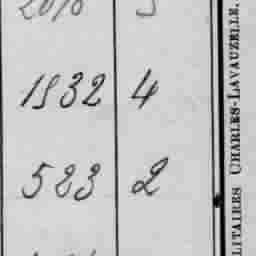 1932 4
523 2
LITAIRES CHARLES-LAVAUZELLE.